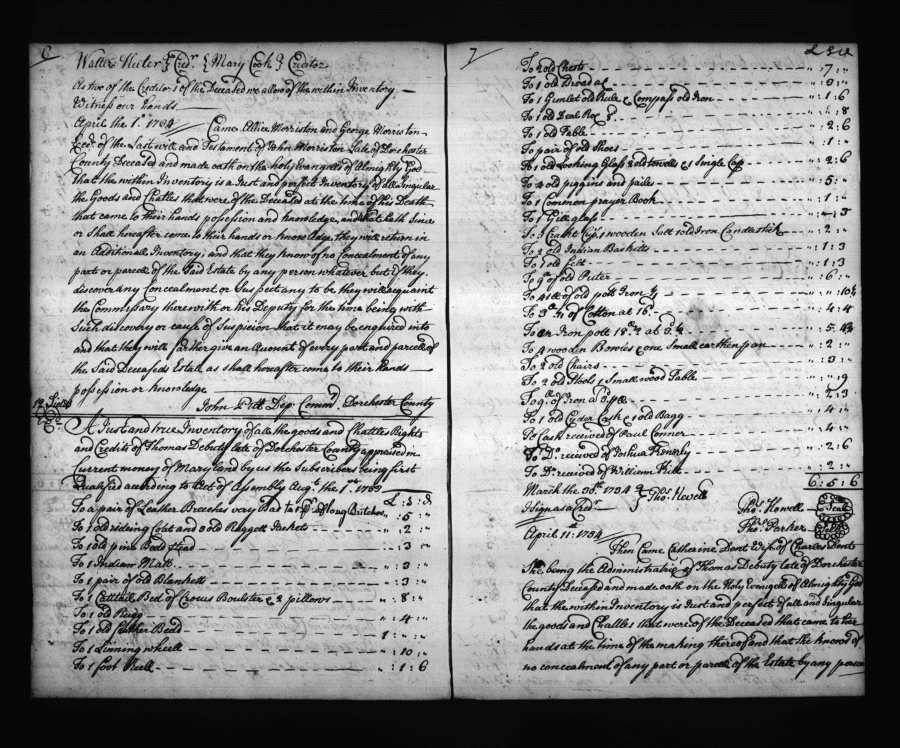 6
Walter Huler } Credr. { Mary Cook } Creditor
As two of the Creditors of the Deceased we allow of the within Inventory. —
Witness our hands —
April the 1st. 1734 Came Allice Morriston and George Morriston
Exrs. of the Last will and Testament of John Morriston Late of Dorchester
County Deceased and made oath on the holy Evangels of Almighty God
that the within Inventory is a Just and perfect Inventory of all & Singular
the Goods and Chatles that were of the Deceased at the time of his Death
that came to their hands possesion and knowledge, and what hath Since
or Shall hereafter come to their hands or knowledge, they will return in
an Additionall Inventory; and that they know of no Concealment of any
part or parcell of the Said Estate by any person whatever but if they.
discover any Concealment or Suspect any to be they will acquaint
the Commissary therewith or his Deputy for the time being with
Such discovery or cause of Suspicion that it may be enquired into
and that they will further give an Account of every part and parcell of
the Said Deceaseds Estate as shall hereafter come to their hands —
possession or knowledge
John Pitt Dep: Commr. Dorchester County
A Just and true Inventory of all the goods and Chattles Rights
and Credits of Thomas Debuty late of Dorchester County appraised in
Current money of Maryland by us the Subscribers being first
Qualifyed according to Act of Assembly Augt. the 1st. 1733
£ : s : d
To a pair of Leather Breeches very Bad " : 5 : "
To 1 old riding Coat and 3 old Raggett Jackets " : 2 : "
To 1 old pine Bedd stead " : 3 : "
To 1 Indian Matt " : 3 : "
To 1 pair of old Blankett " : 3 : "
To 1 Cattaile Bed of Crocus Boulster & 2 pillows " : 8 : "
To 1 old Rugg " : 4 : "
To 1 old feather Bedd 1 : " : "
To 1 Linning wheell " : 10 : "
To 1 foot " : 1 : 6
7
£ s d
To 2 old Chests " : 7 : "
To 1 old Broad ax
To 1 Gimlet old Rule & Compass old Iron " : 1 : 6
To 1 old Deal Box
To 1 old Table " : 2 : 6
To pair of old Shoes " : 1 : "
To 1 old Looking Glass 2 old towells & 1 Single Cap " : 2 : 6
To 4 old piggins and pailes " : 5 : "
To 1 Common prayer Book " : 1 : "
To 1 Gill glass
To 3 1 wooden Salt 1 old Iron Candlestick " : 2 : "
To 2 old Indian Basketts " : 1 : 3
To 1 old " : 1 : 3
To of old Puter " : 6 : "
To of old pott Iron " : " : 10½
To of Cotton at 16d. " : 4 : 4
To an Iron pott
To 4 wooden Bowles & one Small earthen pan " : 2 : "
To 2 old Chairs " : 3 : "
To 2 old Stools 1 Small wood Table " : " : 9
To of Iron " : 2 : 3
To 1 old Cyder Cask & 1 old Bagg " : 4 : "
To Cash received of Paul Conner " : 4 : "
To Do. received of Joshua Kenerly " : 2 : 6
To Do. received of William " : 2 : "
6 : 5 : 6
March the 30th. 1734 } Thos. Hevell
Thos. Howell Seal
I Sign as a Credr.
Thos. Parker Seal
April 11: 1734
Then Came Catherine Dont Wife of Charles Dont
She being the Administratrix of Thomas Debuty late of Dorchester
County Deceased and made oath on the Holy Evangels of Almighty God
that the within Inventory is Just and perfect of all and Singular
the goods and Chattles that were of the Deceased that came to her
hands at the time of the making thereof and that she knows of
no concealment of any part or parcell of the Estate by any person